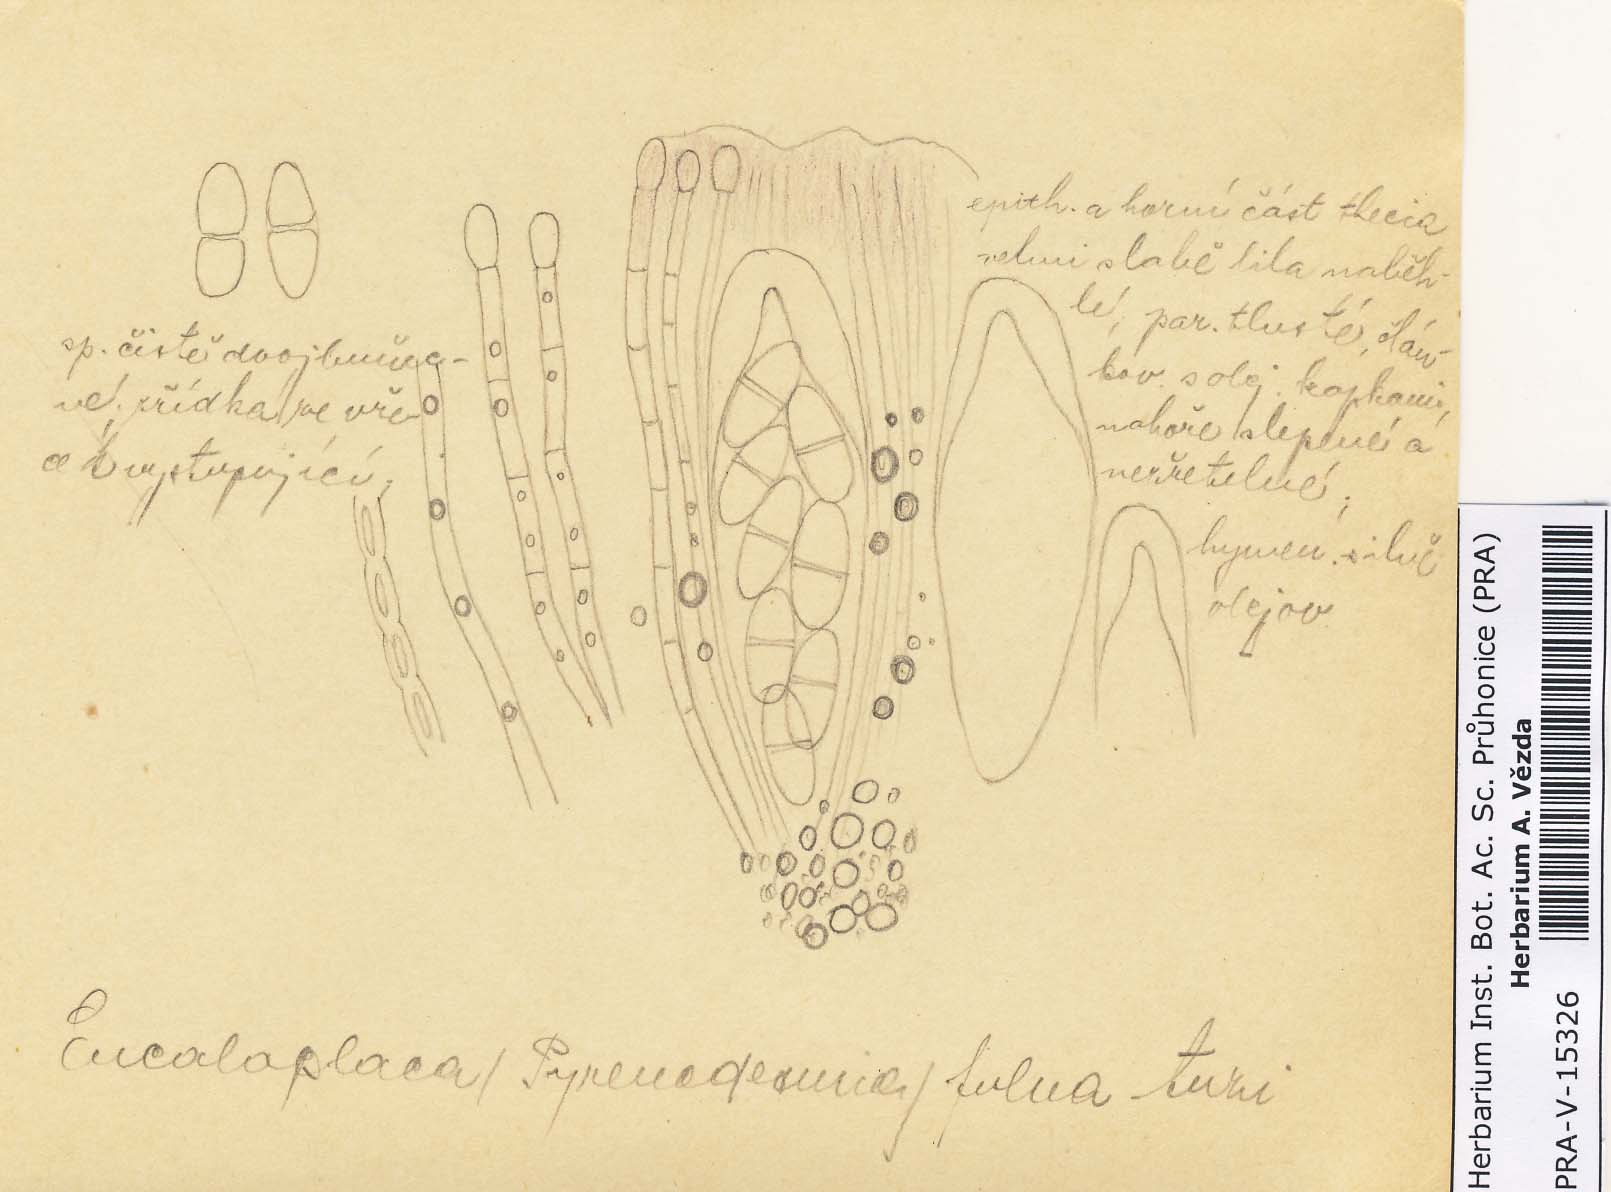 sp. čistě dvojbuněč-
né, zřídka ve vře-
ck. vystupující;
epith. a horní část thecia
velmi slabě lila naběh-
lé; par. tlusté, člán-
kov. s olej. kapkami,
nahoře slepené a
nezřetelné;
hymen. silně
olejov.
Eucaloplaca / Pyrenodesmia / fulva turi
Herbarium Inst. Bot. Ac. Sc. Průhonice (PRA)
Herbarium A. Vězda
PRA-V-15326